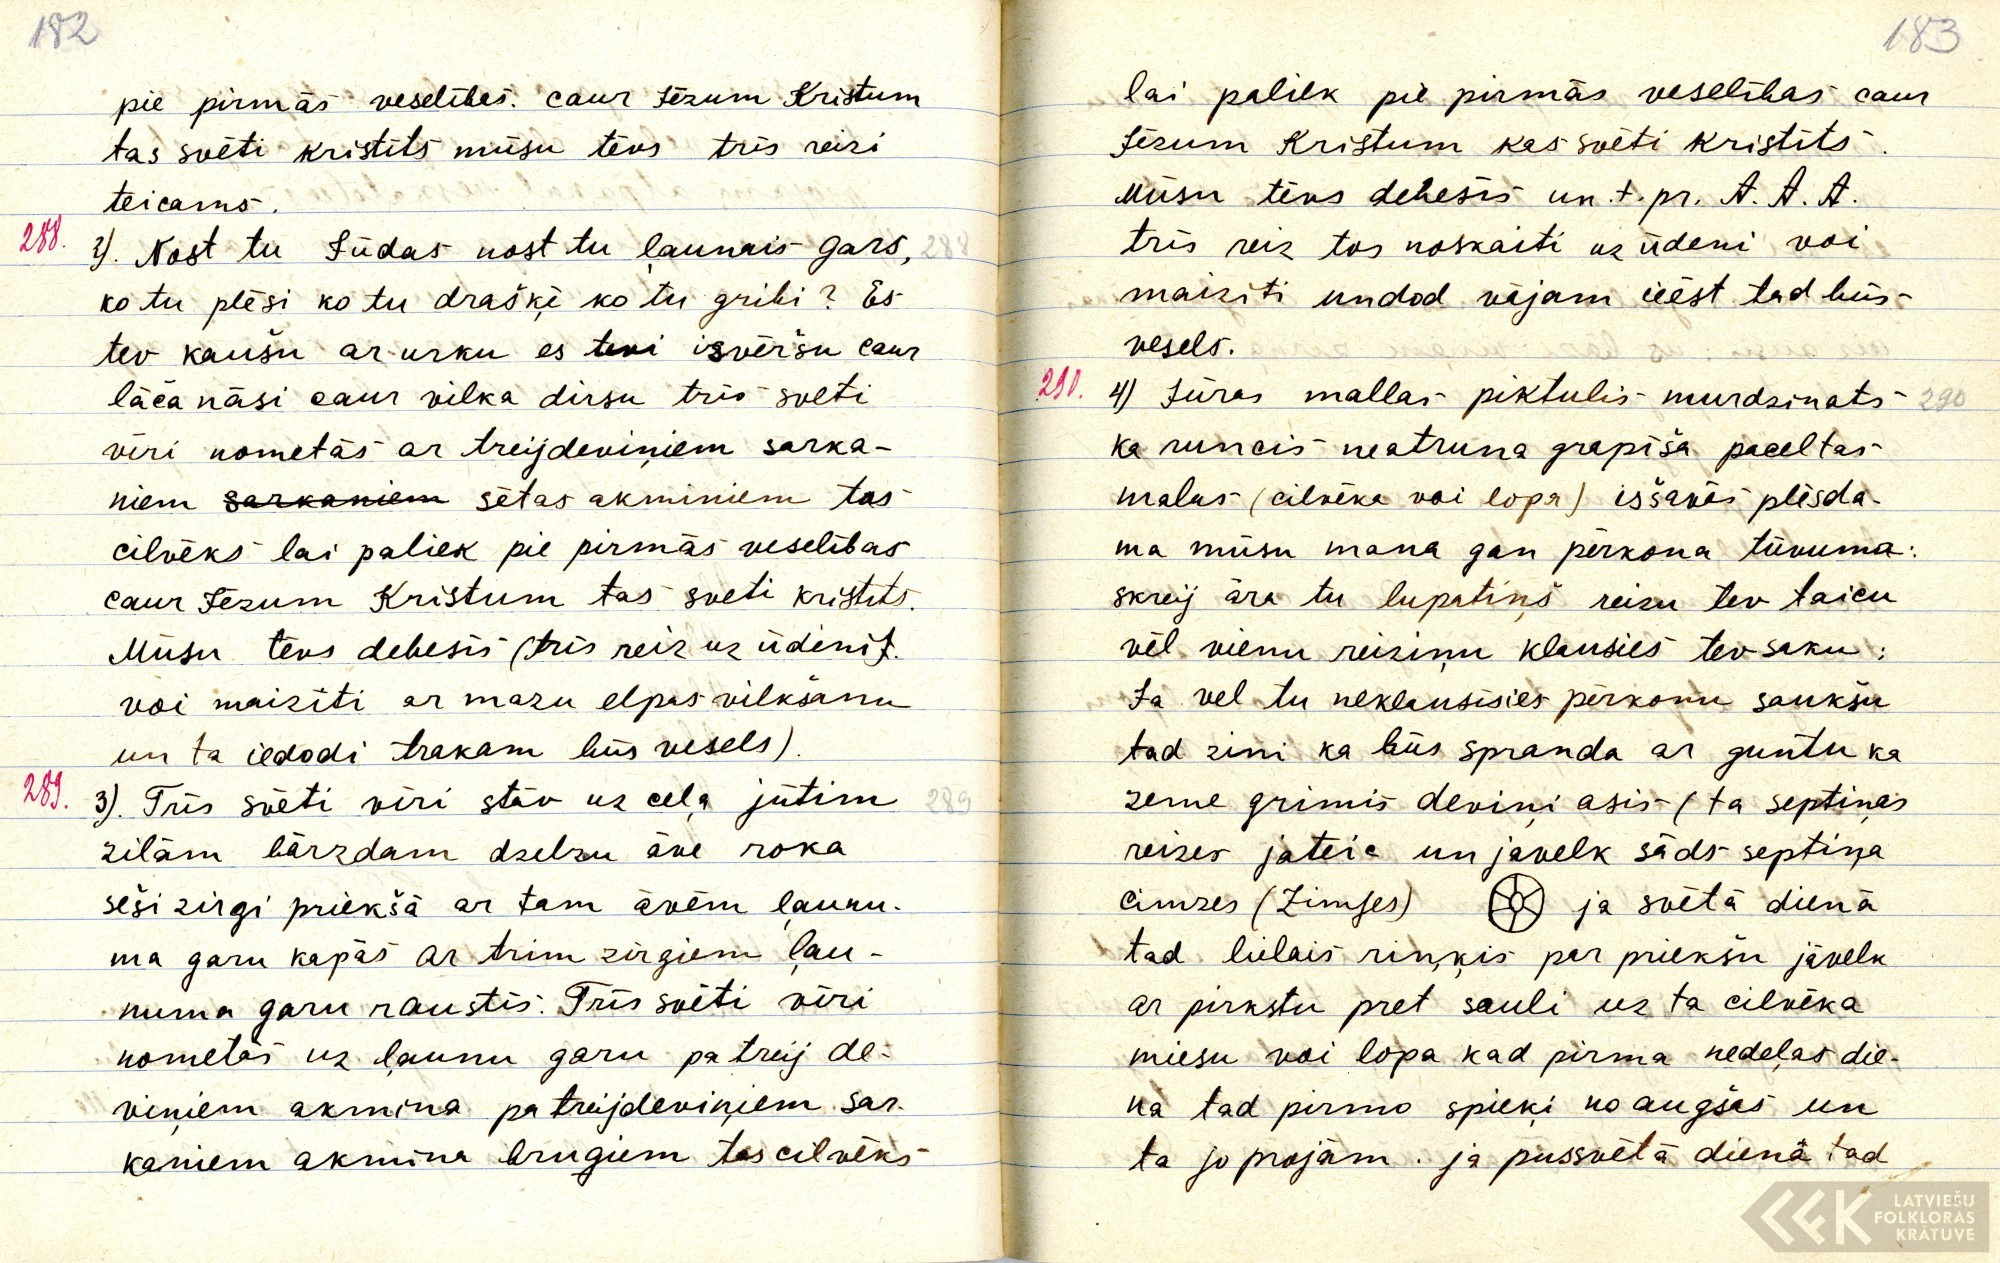 182
pie pirmās veselības. caur Jēzum Kristum
tas svēti kristīts mūsu tēvs trīs reizi
teicams.
288. 2). Nost tu Jūdas nost tu ļaunais gars, 288
ko tu plēsi ko tu draškē ko tu gribi? Es
tev kaušu ar urku es tevi isvēršu caur
lāča nāsi caur vilka dirsu trīs sveti
vīri nometās ar treijdeviņiem sarka-
niem sarkaniem sētas akminiem tas
cilvēks lai paliek pie pirmās veselības
caur Jēzum Kristum tas sveti kristīts.
Mūsu tēvs debesīs (trīs reiz uz ūdeni
voi maizīti ar mazu elpas vilkšanu
un ta iedodi trakam būs vesels).
289. 3). Trīs svēti vīri stāv uz ceļa jūtim 289
zilām bārzdam dzelzu āve roka
seši zirgi priekšā ar tam āvēm ļaunu-
ma garu kapās ar trim zirgiem ļau-
numa garu raustīs. Trīs svēti vīri
nometās uz ļaunu garu pa treij de-
viņiem akmina pa treijdeviņiem sar-
kaniem akmina brugiem tas cilvēks
183
lai paliek pie pirmās veselības caur
Jēzum Kristum kas svēti kristīts.
Mūsu tēvs debesīs un.t.pr. A. A. A.
trīs reiz tos noskaiti uz ūdeni voi
maiziti undod vājam ieēst tad būs
vesels.
290. 4) Jūras mallas piktulis murdzinats 290
ka runcis neatruna grapīša paceltas
malas (cilvēka voi lopa) isšavēs plēsda-
ma mūsu mana gan pērkona tūvuma:
skreij āra tu lupatiņš reizu tev taicu
vēl vienu reiziņu klausies tev saku:
Ja vel tu neklausīsies pērkonu saukšu
tad zini ka būs spranda ar guntu ka
zeme grimis deviņi asis (ta septiņas
reizes jateic un javelk sāds septiņa
cimzes (Zimses) ja svētā dienā
tad lielais riņķis par priekšu jāvelk
ar pirkstu pret sauli uz ta cilvēka
miesu voi lopa kad pirma nedeļas die-
na tad pirmo spieķi no augšas un
ta jo projām. ja pussvētā dienā tad
LATVIEŠU
FOLKLORAS
KRĀTUVE